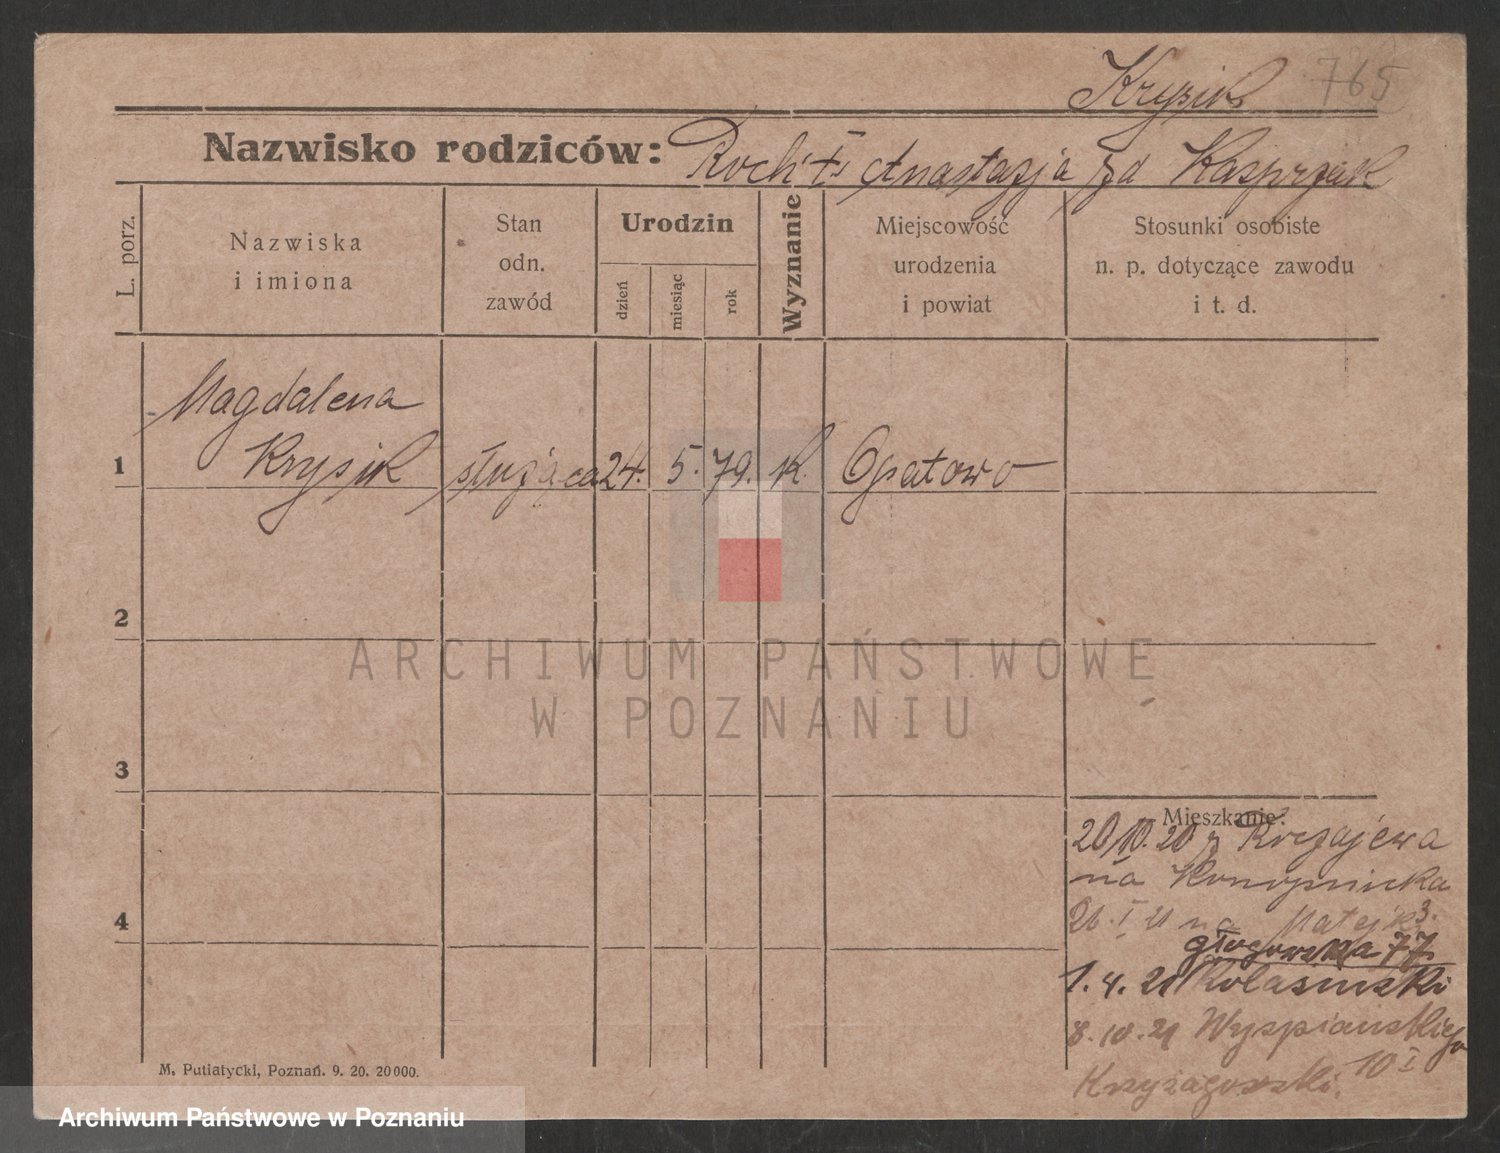 Krysik 765
Nazwisko rodziców: Roch + i Anastazja zd Kasprzak
L. porz.
Nazwiska
i imiona
Stan
odn.
zawód
Urodzin
dzień
miesiąc
rok
Wyznanie
Miejscowość
urodzenia
i powiat
Stosunki osobiste
n. p. dotyczące zawodu
i t. d.
Magdalena
1 Krysik służąca 24. 5. 79. k. Opatowo
2
ARCHIWUM PAŃSTWOWE
W POZNANIU
3
Mieszkanie:
20/10.20 z
na Konopnicka
26. I 21 na Matejki 3.
4
głogowska 77
1. 4. 21 Kolasinski
8. 10. 21 Wyspianskiego
10 I
Krzyżagorski.
M. Putiatycki, Poznań. 9. 20. 20000.
Archiwum Państwowe w Poznaniu